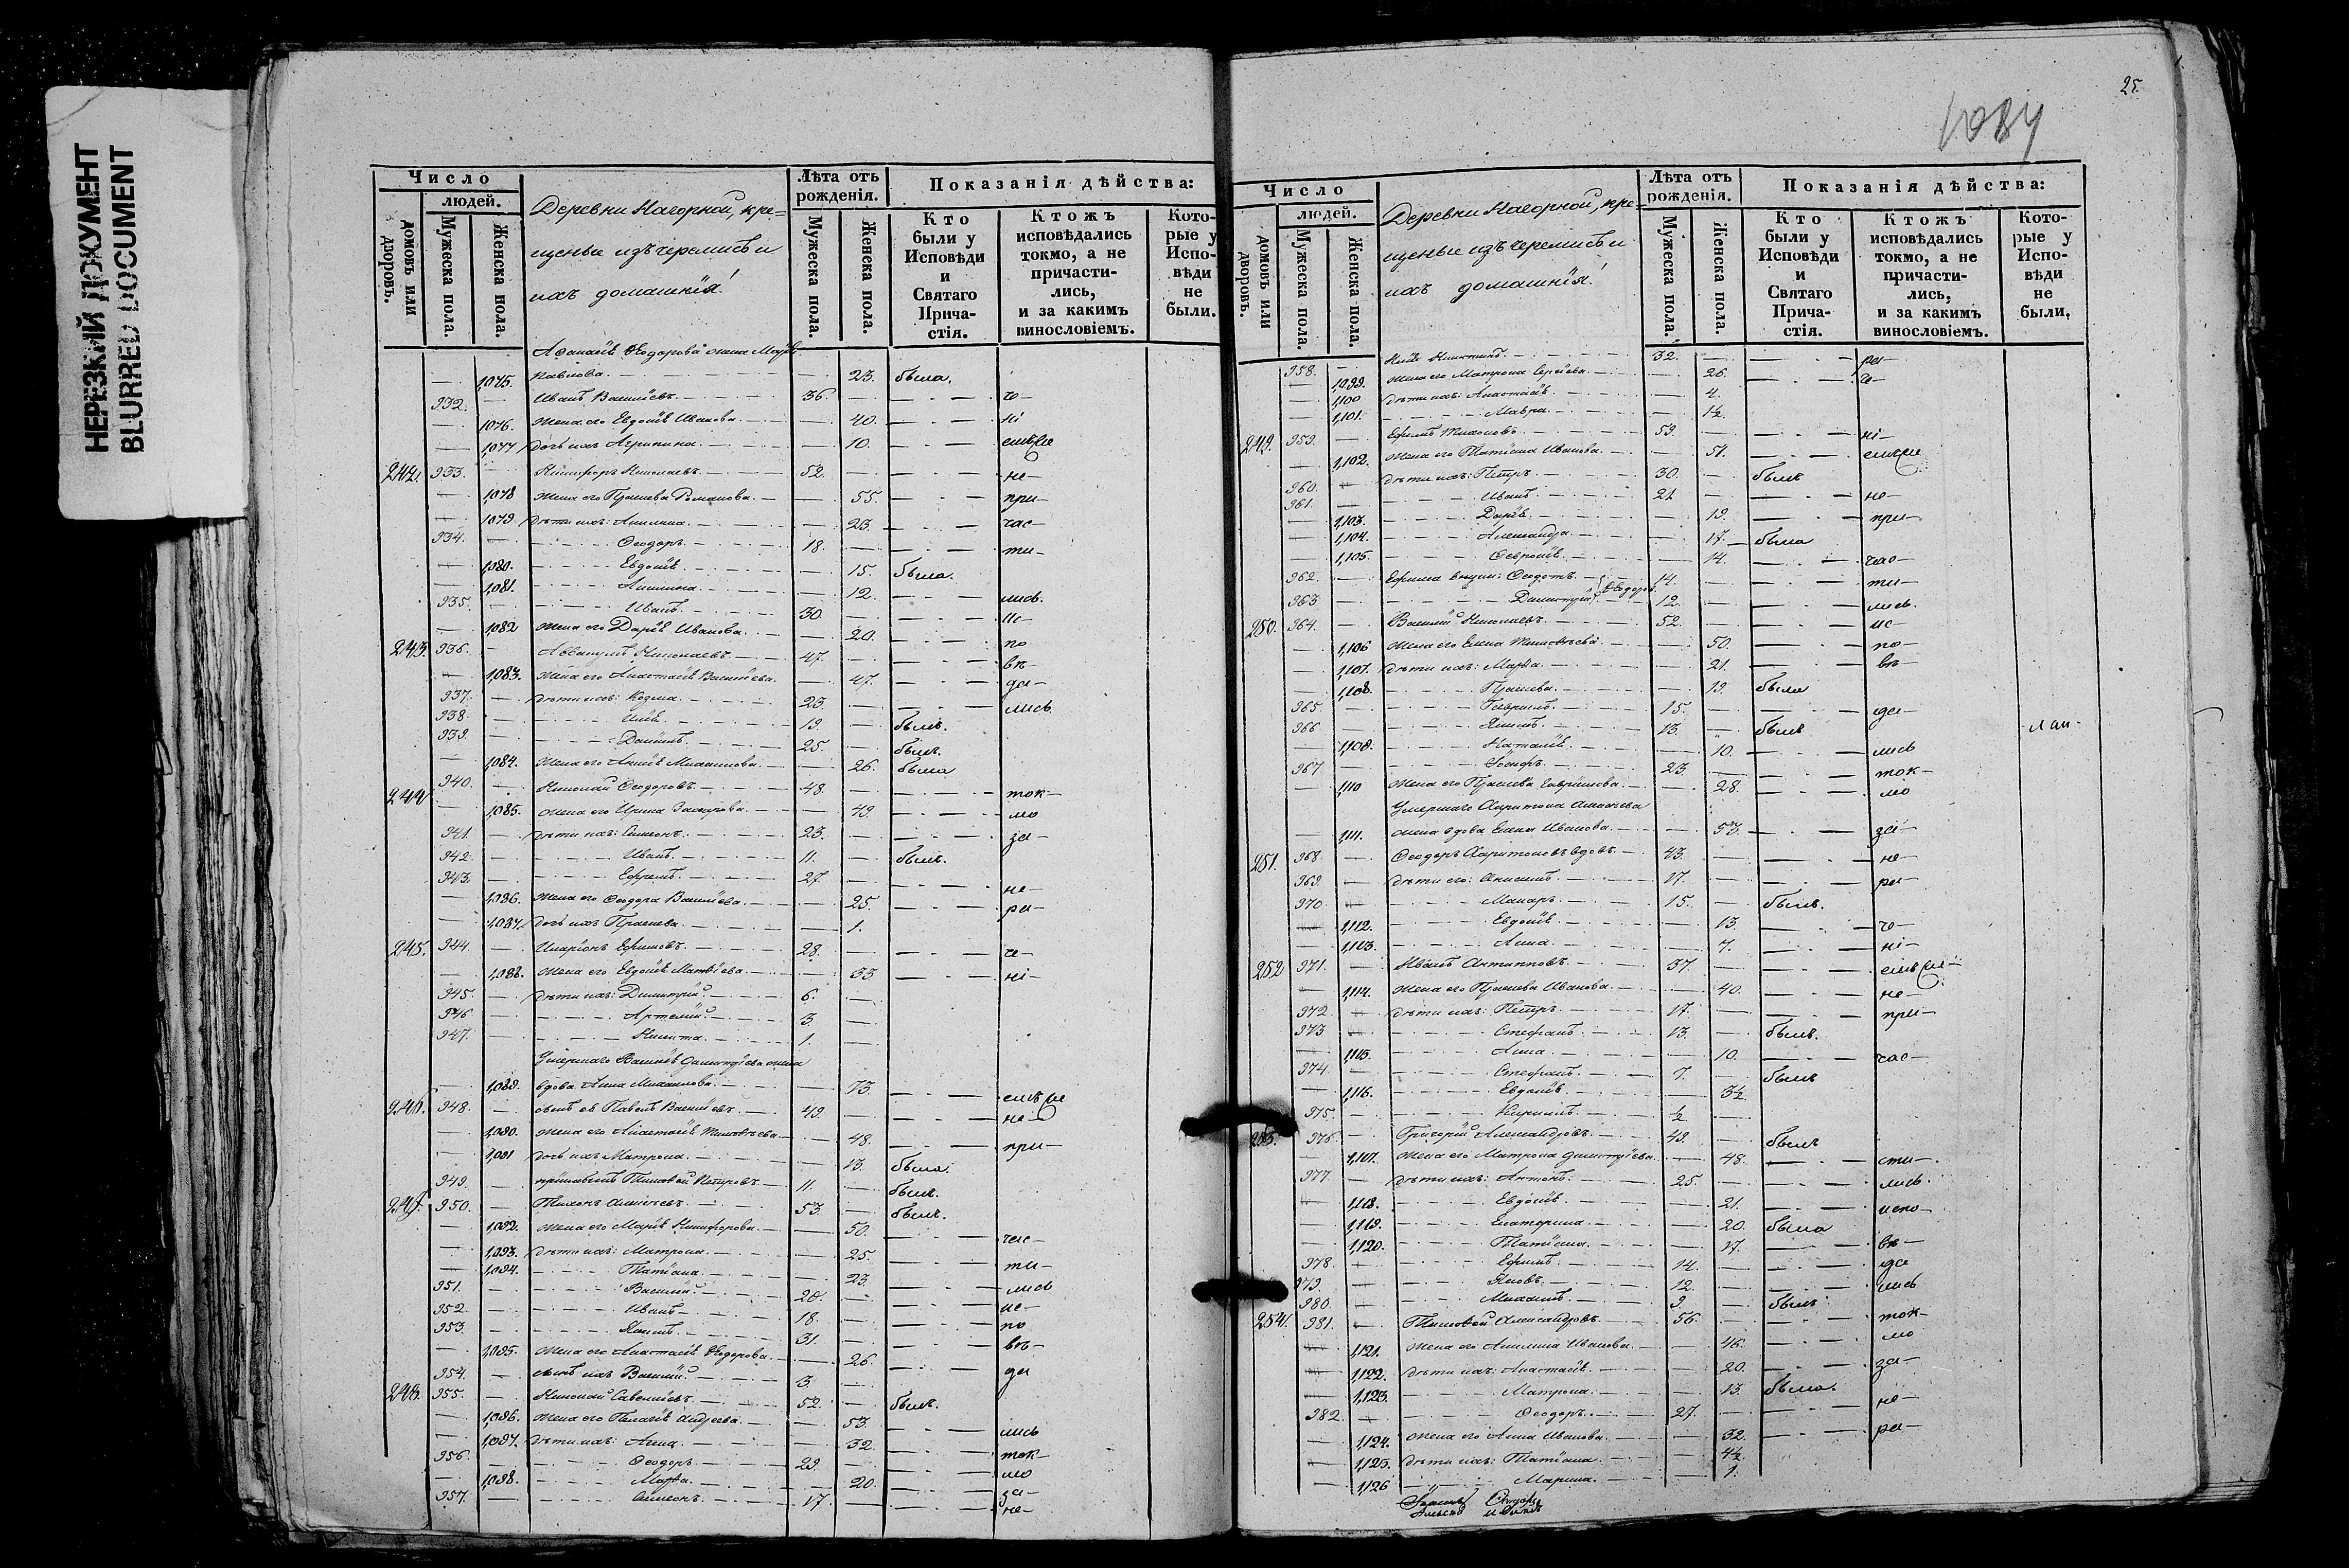 НЕРЕЗКИЙ ДОКУМЕНТ
BLURRED DOCUMENT
Число
людей.
домовъ или дворовъ.
Мужеска пола.
Женска пола.
Деревни Нагорной, кре-
щеные изъ черемисъ и
ихъ домашнія:
Лѣта отъ рожденія.
Мужеска пола.
Женска пола.
Показанія дѣйства:
Кто были у Исповѣди и Святаго Прича-стія.
Ктожъ исповѣдались токмо, а не причасти-лись, и за какимъ винословіемъ.
Кото-рые у Испо-вѣди не были.
Ѳеодорова жена
1,075. Павлова. 23. была.
932. Иванъ Васильевъ. 36. че-
1076. Жена его Евдокія Иванова. 40. ні
1,077 Дочь ихъ Агрипина. 10.
242. 933. Никифоръ Николаевъ. 52. не-
1,078 Жена его Романова. 55. при-
1,079 Дѣти ихъ: Акилина. 23. час-
934. Ѳеодоръ. 18. ти-
1,080. Евдокія. 15. была.
1,081. 12. лись.
935. Иванъ. 30. ис-
1,082 Жена его Дарія Иванова. 20. по
243. 936. Аввакумъ Николаевъ. 47. вѣ-
1,083. Жена его Анастасія Васильева. 47. да-
937. Дѣти ихъ: Козма. 23. лись
938. Илія. 19. былъ.
939. Даніилъ. 25. былъ.
1,084. Жена его Михаилова. 26. была
244 940. Николай Ѳеодоровъ. 48. ток-
1,085. Жена его Ирина Захарова. 49. мо
941. Дѣти ихъ: Симеонъ. 23. за-
942. Иванъ. 11. былъ.
943. Ефремъ. 27. не-
1,086. Жена его Ѳеодора Васильева. 25. ра-
1,087. Дочь ихъ 1.
245. 944. Иларіонъ Ефимовъ. 28. че-
1,088. Жена его Евдокія Матвіева. 33. ні-
945. Дѣти ихъ: Димитрій. 6.
946 Артемій. 3.
947. Никита. 1.
Умершаго Василія Димитріева жена
1,089. вдова Анна Михаилова. 73.
246. 948. сынъ ея Павелъ Васильевъ. 49. не-
1,090. Жена его Анастасія Тимоѳѣева. 48. при-
1,091 Дочь ихъ Матрона. 13. была.
949. Тимоѳей Петровъ. 11. былъ.
247. 950. Тихонъ Алексѣевъ. 53. былъ.
1,092. Жена его Марія Никифорова. 50. час-
1,093. Дѣти ихъ: Матрона. 25. ти-
1,094. Татіана. 23. лись
951. Василій. 20. ис-
952. Иванъ. 18. по
953. 31. вѣ-
1,095. Жена его Анастасія Ѳеодорова. 26. да
954. сынъ ихъ Василій. 3.
248. 955. Николай Савельевъ. 52. былъ.
1,096. Жена его Пелагія Андреева. 53. лись
1,097. Дѣти ихъ: Анна. 32. ток-
956. Ѳеодоръ. 29. мо
1,098. Марѳа. 20. за-
957. Симеонъ. 17. не-
25.
1084
Число
людей.
домовъ или дворовъ.
Мужеска пола.
Женска пола.
Деревни Нагорной, кре-
щеные изъ черемисъ и
ихъ домашнія:
Лѣта отъ рожденія.
Мужеска пола.
Женска пола.
Показанія дѣйства:
Кто были у Исповѣди и Святаго Прича-стія.
Ктожъ исповѣдались токмо, а не причасти-лись, и за какимъ винословіемъ.
Кото-рые у Испо-вѣди не были.
958. 32. ра-
1,099. Жена его Матрона Сергѣева. 26. че-
1,100 Дѣти ихъ: Анастасія. 4.
1,101. Мавра. 1½.
249. 959. Ефимъ Тихоновъ. 59. ні-
1,102. Жена его Татіана Иванова. 51.
960. Дѣти ихъ: Петръ. 30. былъ
961. Иванъ. 21 не-
1,103. Дарія. 19. при-
1,104. Александра. 17. была
1,105. Ѳевронія. 14. час-
962. Ефима внуки: Ѳеодотъ. 14. ти-
963 Димитрій. Ѳеодоров. 12. лись.
250. 964. Василій Николаевъ. 52. ис-
1,106 Жена его Елена Тимоѳѣева. 50. по-
1,107. Дѣти ихъ: Марѳа. 21. вѣ-
1,108. 19. была
965 Гавріилъ. 15. да-
966 13. былъ
1,109. Наталія. 10. лись
967 Іосифъ. 23. ток-
1,110 Жена его Гавріилова. 28. мо
Умершаго Харитона
1,111. жена вдова Елена Иванова. 53. за-
251. 968. Ѳеодоръ Харитоновъ вдовъ. 43. не-
969. Дѣти его: Анисимъ. 17. ра-
970 Макаръ. 15. былъ.
1,112. Евдокія. 13. че-
1,113. Анна. 7. ні-
252 971. Иванъ Антиповъ. 37.
1,114. Жена его Иванова. 40. не-
972 Дѣти ихъ: Петръ. 17. при-
973 Стефанъ. 13. былъ.
1,115. Анна. 10. час-
974 Стефанъ. 7. былъ
1,116. Евдокія. 3½
975 Кирилъ. ½
253. 976. Григорій Александровъ. 49. былъ
1,117. Жена его Матрона Димитріева. 48. сти-
977. Дѣти ихъ: Антонъ. 25. лись.
1,118. Евдокія. 21. испо-
1,119. Екатерина. 20. была
1,120. Татіана. 17. вѣ-
978. Ефимъ. 14. да
979. Яковъ. 12. лись
980. Михаилъ. 9. былъ
254. 981. Тимоѳей Александровъ. 56. ток-
1,121. Жена его Акилина Иванова. 46. мо
1,122. Дѣти ихъ: Анастасія. 20. за-
1,123. Матрона. 13. была.
982. Ѳеодоръ. 27. не-
1,124. Жена его Анна Иванова. 32. ра-
1,125. Дѣти ихъ: Татіана. 4½.
1,126 Марина. 1.